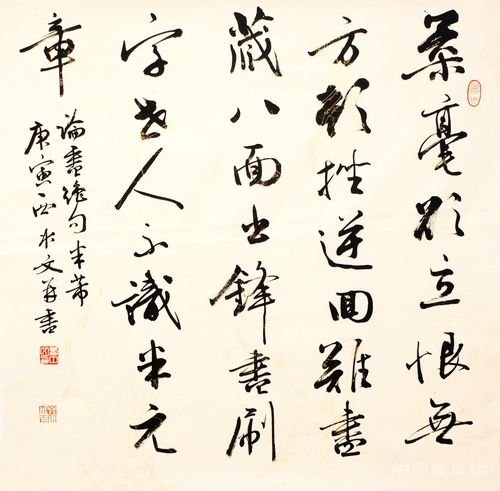 柔毫欲立恨無
方頓挫逆回難盡
藏八面出鋒書刷
字世人不識米元
章
論書絕句米芾
庚寅西水文書
中国书画网